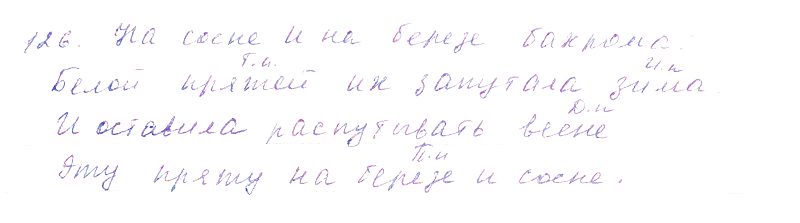 126. На сосне и на березе бахрома.
Т.п. И.п
Белой пряжей их запутала зима.
Д.п
И оставила распутывать весне
П.п
Эту пряжу на березе и сосне.